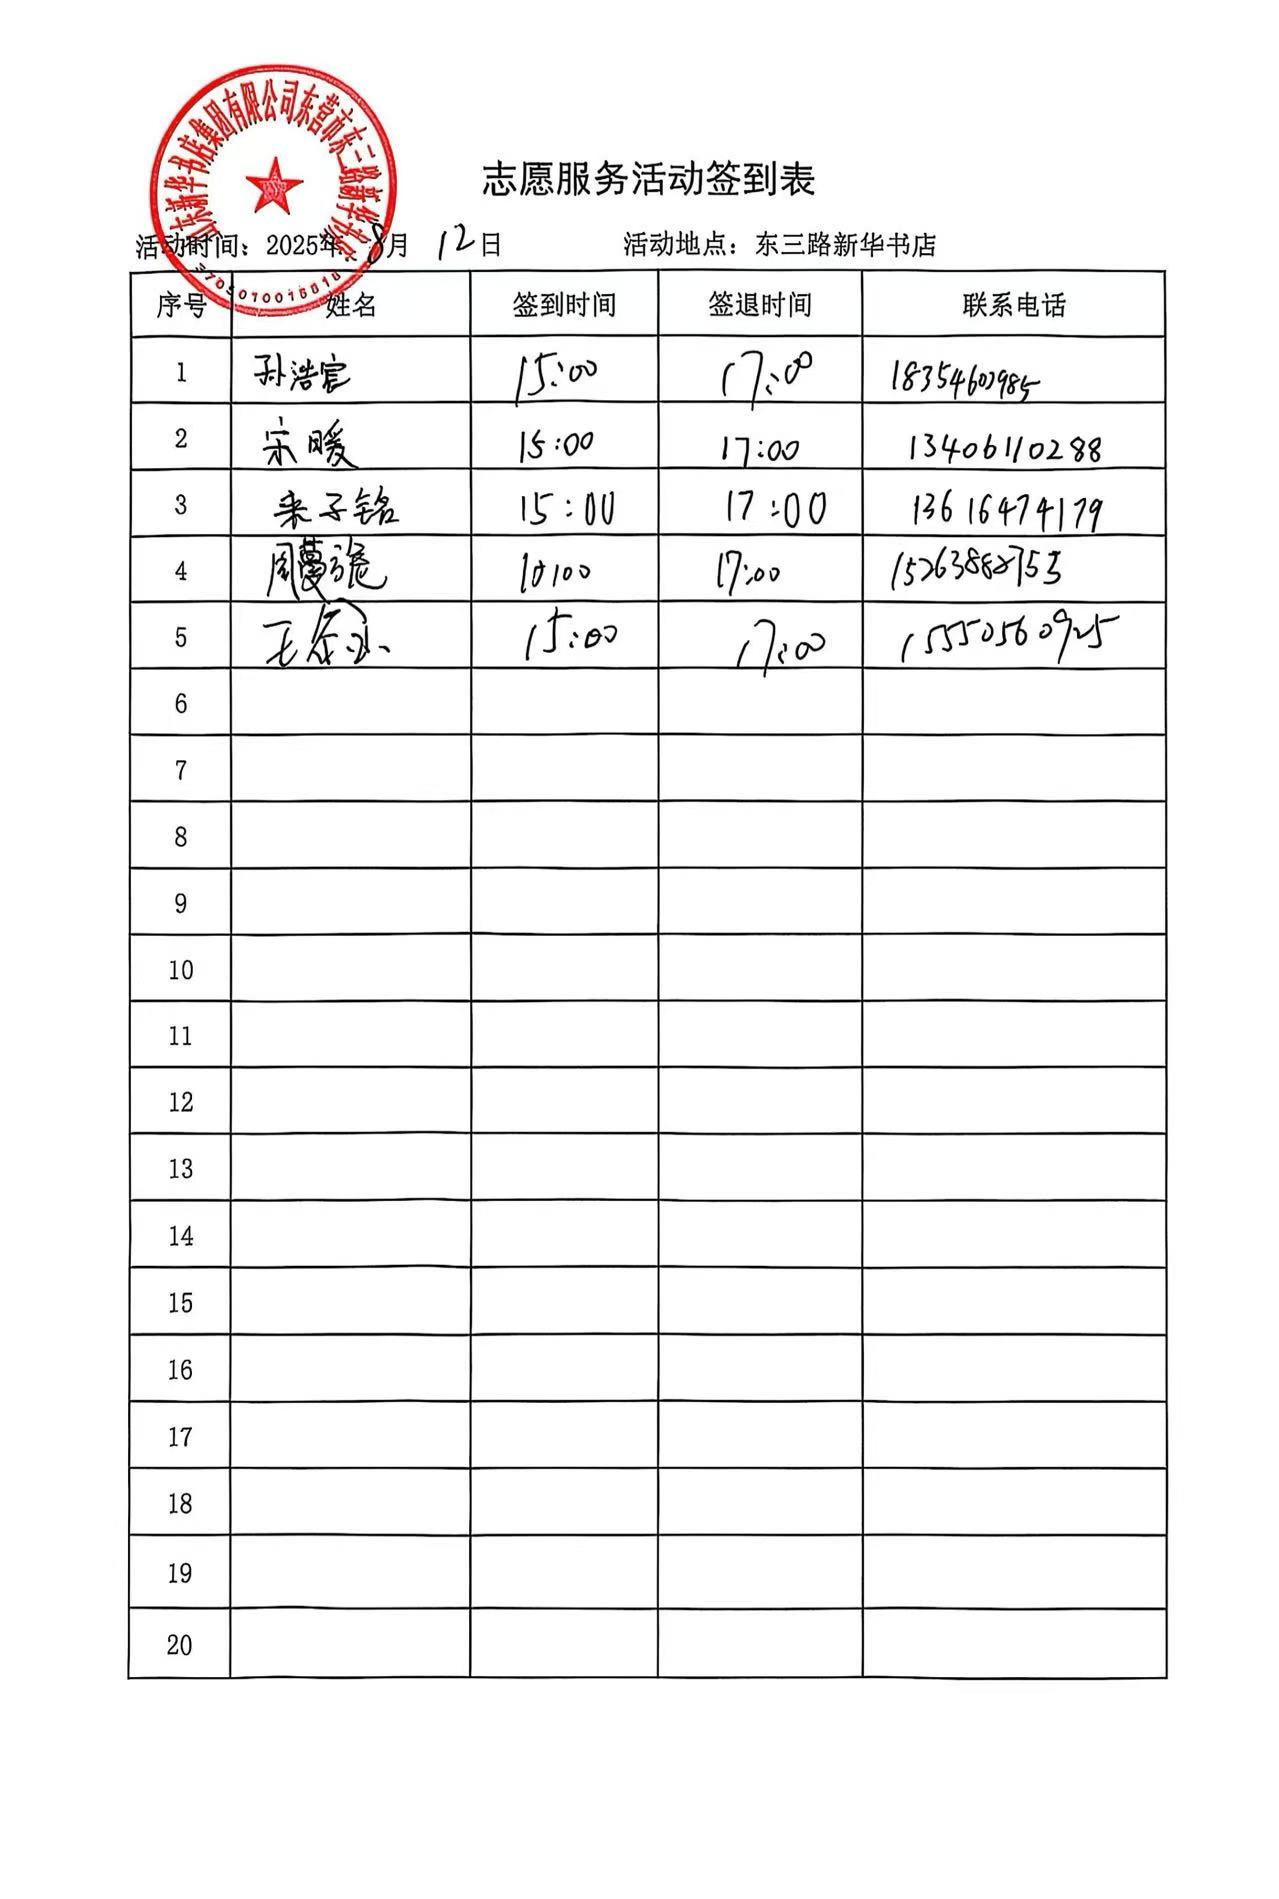 山东新华书店集团有限公司东营市东三路新华书店
3705010016818
志愿服务活动签到表
活动时间：2025年 8月 12日 活动地点：东三路新华书店
序号 姓名 签到时间 签退时间 联系电话
1 孙浩宸 15:00 17:00 18354602985
2 宋暖 15:00 17:00 13406110288
3 来子铭 15:00 17:00 13616474179
4 周 17:00
5 王 15:00 17:00 15550560925
6
7
8
9
10
11
12
13
14
15
16
17
18
19
20